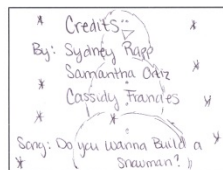 Credits
By: Sydney Rapp
Samantha Ortiz
Cassidy Frances
Song: Do you wanna Build a
snowman?